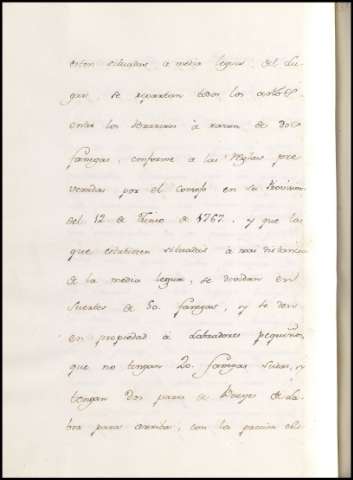 esten situadas a media legua del Lu-
gar, se repartan todos los años
entre los Braceros à razon de doce
fanegas, conforme a las Reglas pre-
venidas por el Consejo en su Provision
del 12 de Junio de 1767. y que las
que estubieren situadas à mas distancia
de la media legua, se dividan en
Suertes de 50. fanegas, y se den
en propiedad à Labradores pequeños,
que no tengan 20. fanegas suias, y
tengan dos pares de Bueyes de La-
bra para arriba, con la precisa obli-